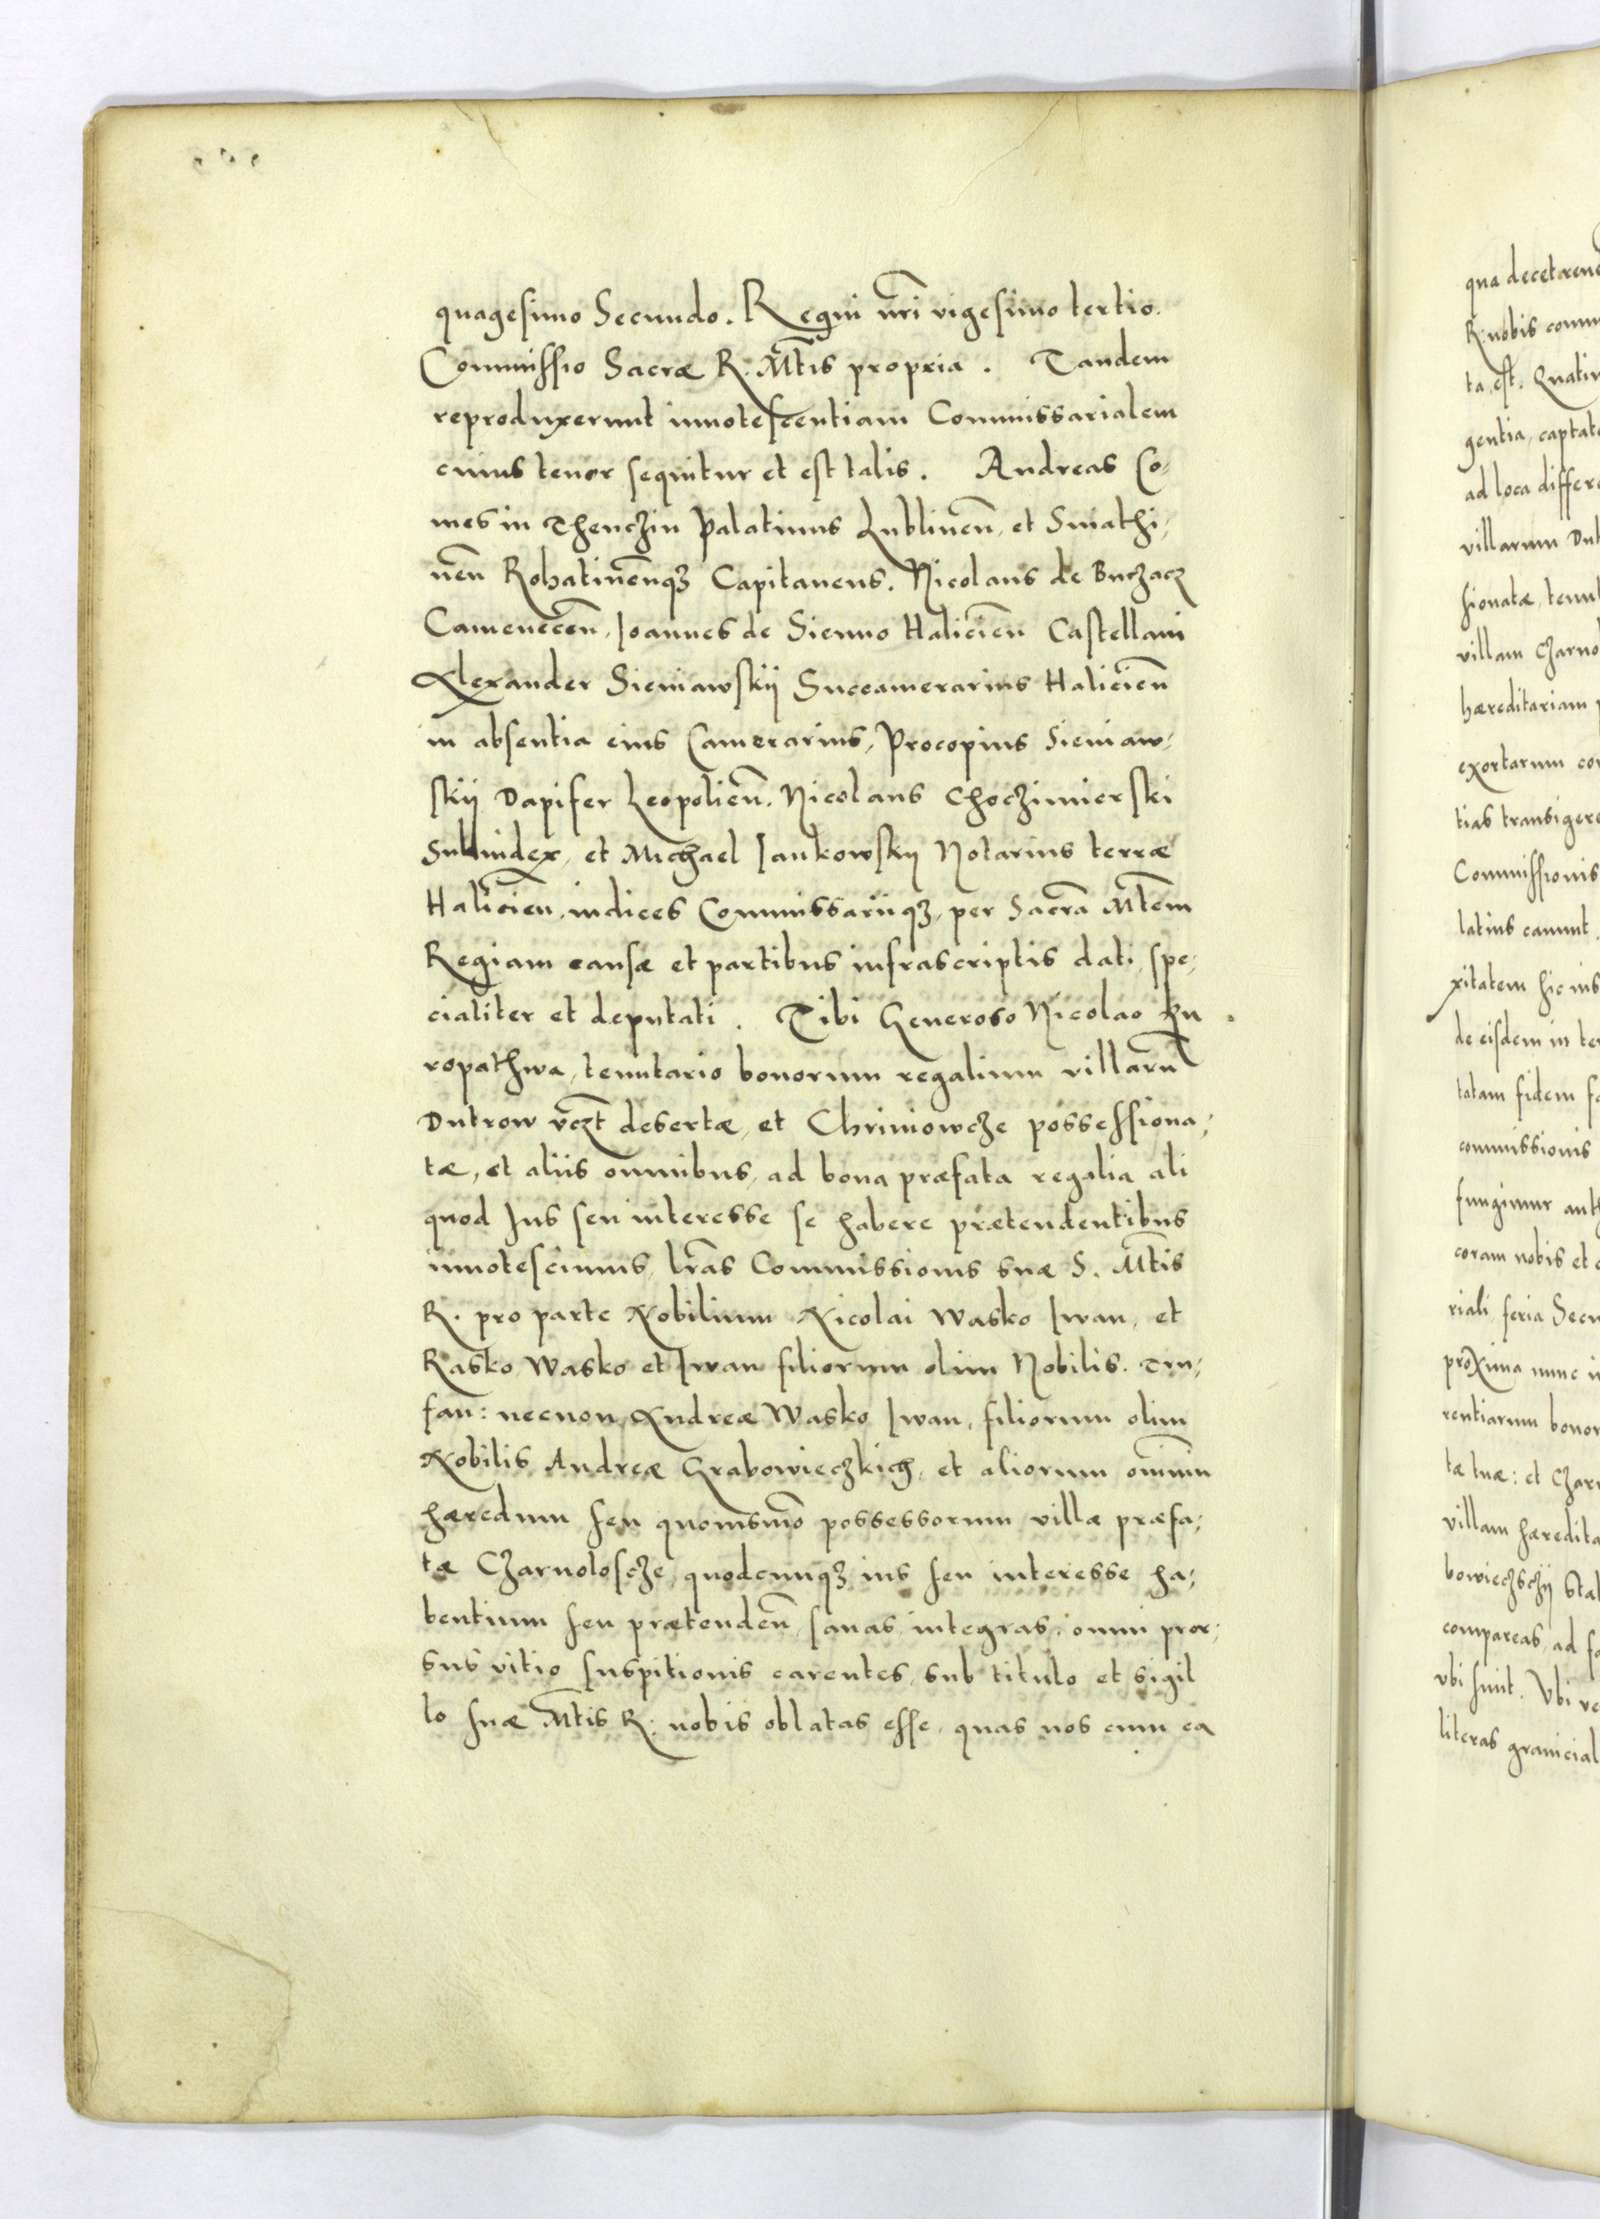 quagesimo Secundo. Regni nr̃i vigesimo tertio.
Commissio Sacræ R. Mtis propria. Tandem
reproduxerunt innotescentiam Commissarialem
cuius tenor sequitur et est talis. Andreas Co,
mes in Thenczin Palatinus Lublineñ, et Sniathi,
neñ Rohatineñqꝫ Capitaneus. Nicolaus de Buczacz
Cameneceñ, Ioannes de Sienno Halicieñ Castellani
Alexander Sieniawskij Succamerarius Halicieñ
in absentia eius Camerarius, Procopius Sieniaw,
skij Dapifer Leopolieñ. Nicolaus Choczimierski
Subiudex, et Michael Iankowskij Notarius terræ
Halicieñ, iudices Commissarijqꝫ, per Sacrã Mtem
Regiam causæ et partibus infrascriptis dati, spe,
cialiter et deputati. Tibi Generoso Nicolao Ku
ropathwa, tenutario bonorum regalium villarũ
Dutrow vczt desertæ, et Chriniowcze possessiona,
tæ, et alijs omnibus, ad bona præfata regalia ali
quod Ius seu interesse se habere prætendentibus
innotescimus, lr̃as Commissionis suæ S. Mtis
R. pro parte Nobilium Nicolai Wasko Iwan, et
Rasko, Wasko et Iwan filiorum olim Nobilis. Tru,
fan: necnon Andreæ Wasko Iwan, filiorum olim
Nobilis Andreæ Grabowieczkich, et aliorum om̃nium
hæredum seu quouismõ possessorum villæ præfa,
tæ Czarnoloscze, quodcunqꝫ ius seu interesse ha,
bentium seu prætendeñ, sanas, integras, omni pror,
sus vitio suspitionis carentes, sub titulo et sigil
lo suæ Mtis R: nobis oblatas esse, quas nos cum ea
qua decet
R: nobis
ta est. Quatin
gentia, captat
ad loca differe
villarum Dut
sionatæ, tenut
villam Czarno
hæreditariam
exortarum con
tias transigere
Commissionis
latius canunt.
xitatem hic
de eisdem in te
tatam fidem
commissionis
fungimur auth
coram nobis et
riali, feria Secu
proxima nunc
rentiarum bonor
tæ tuæ: et Czar
villam hæredita
bowieczscij Stat
compareas, ad
vbi sunt. Vbi
literas granicial